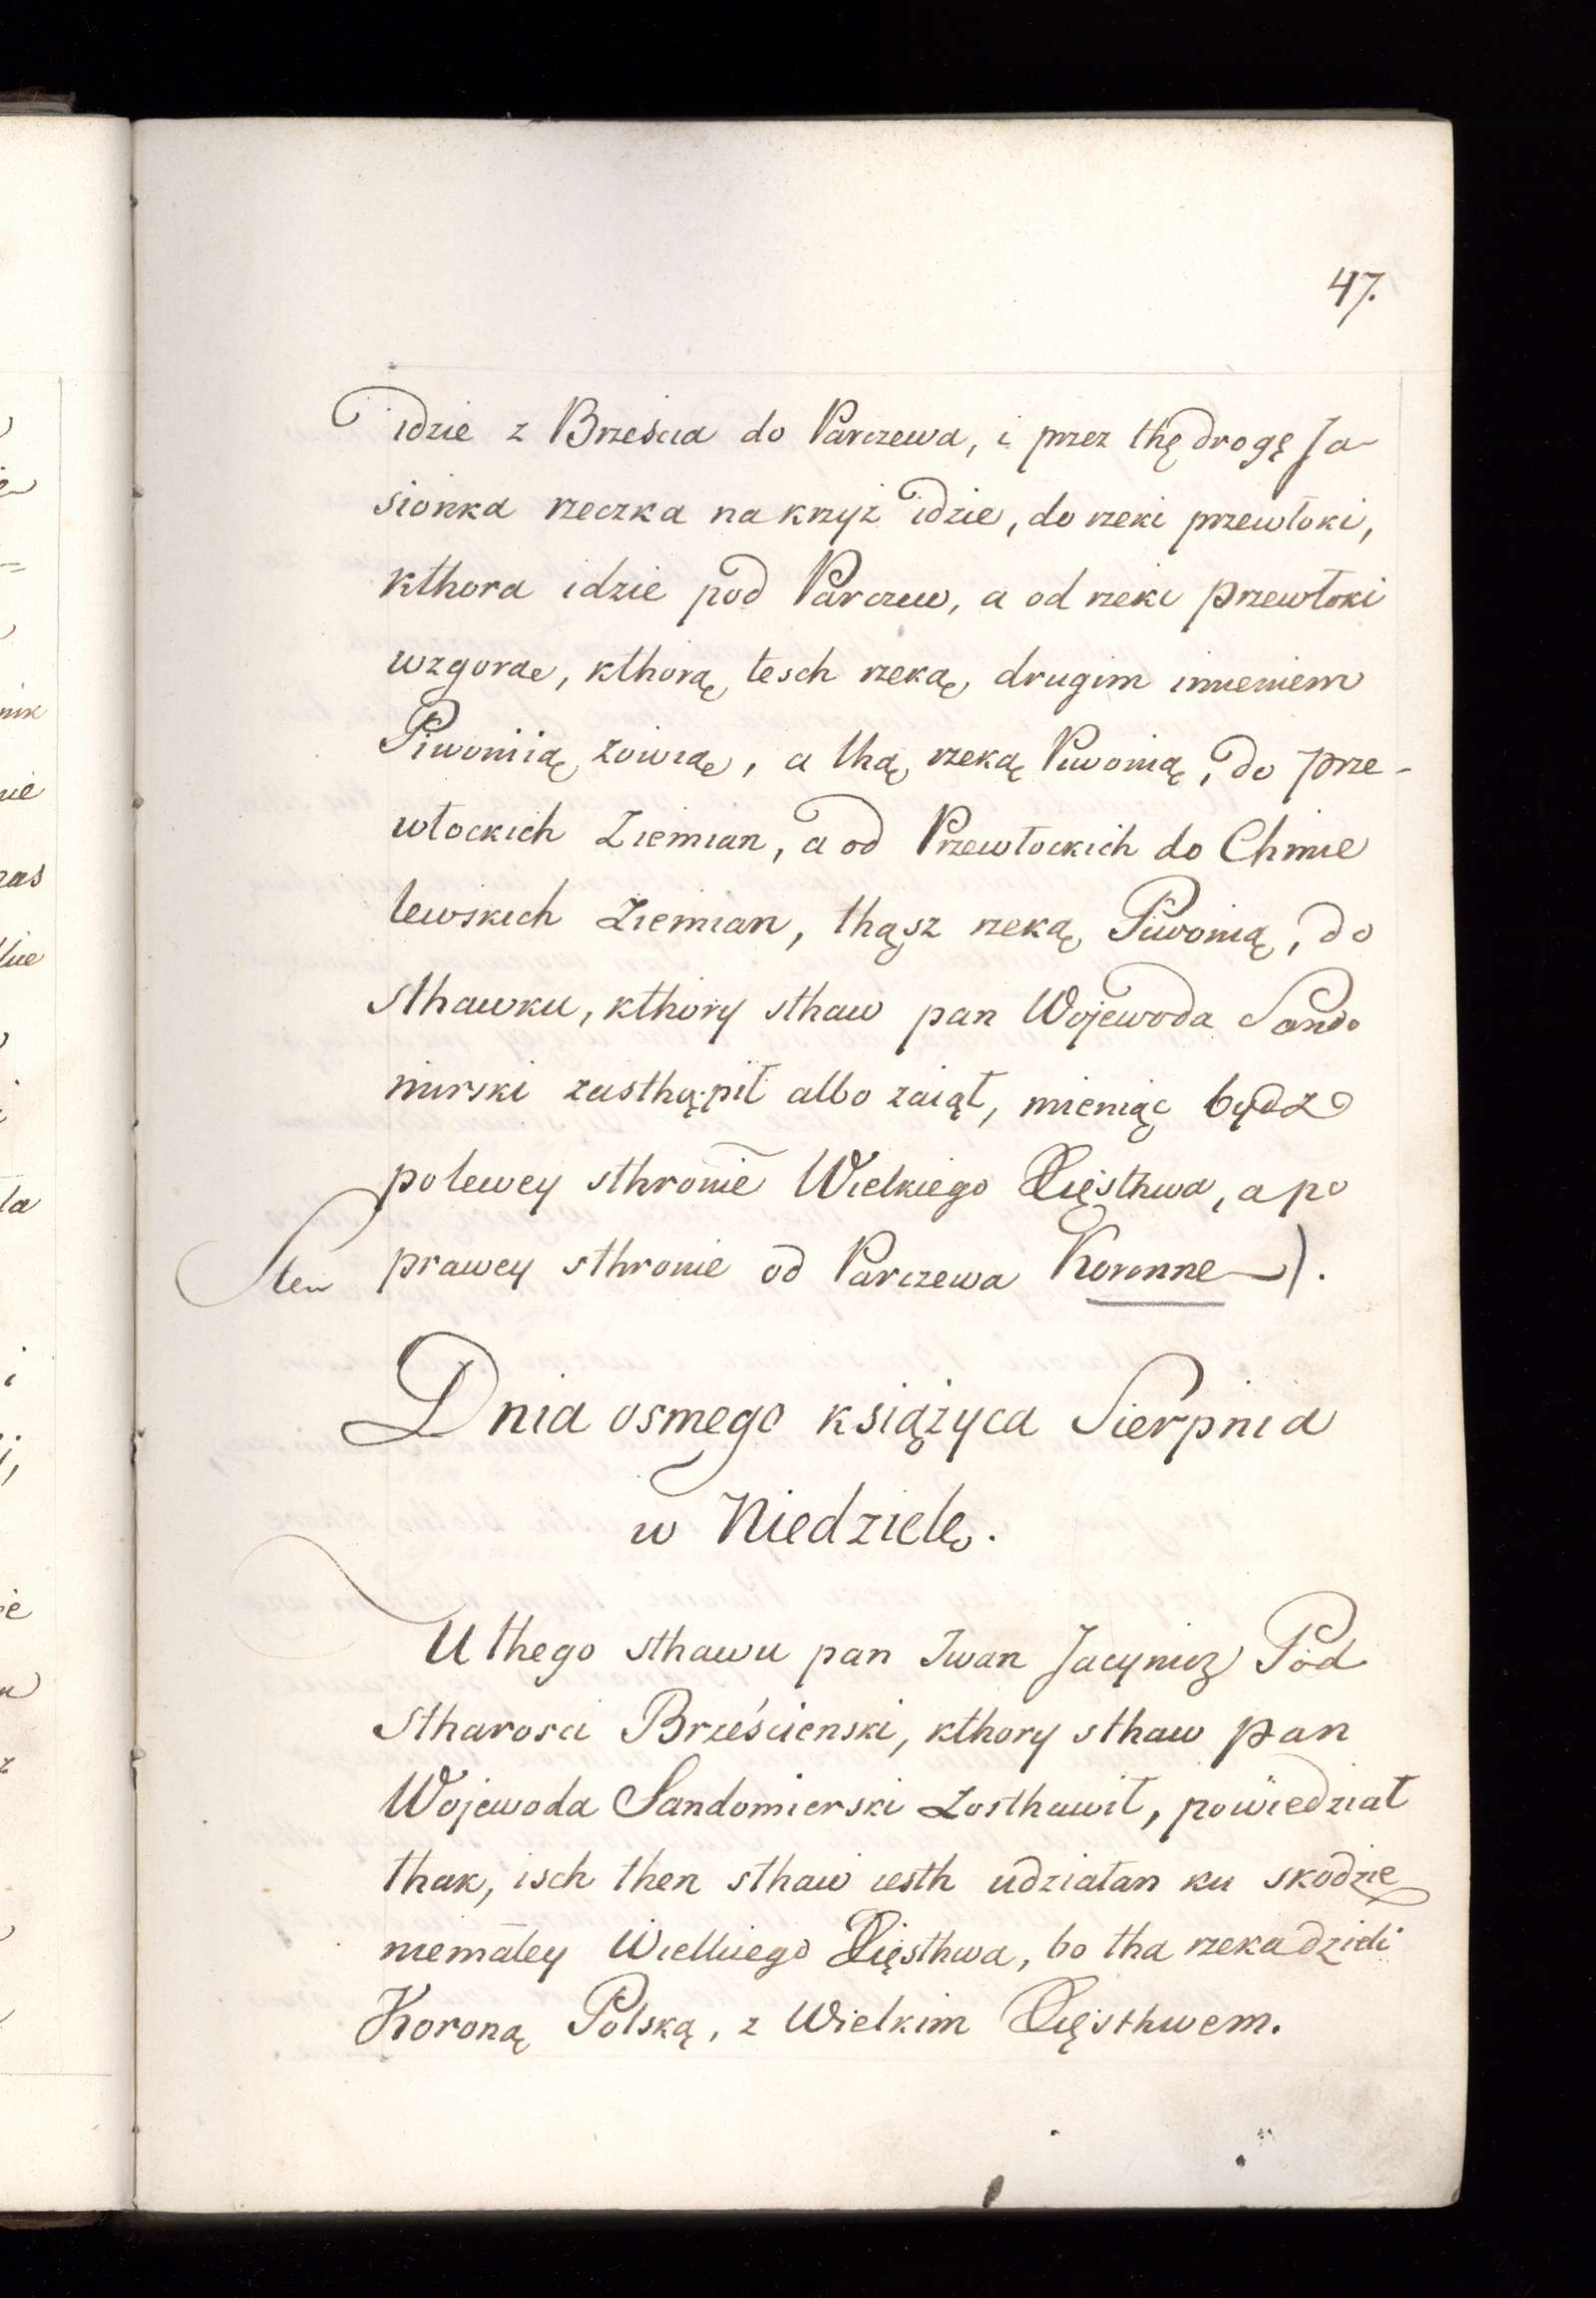 47.
idzie z Brześcia do Parczewa, i przez thę drogę Ja-
sionka rzeczka na krzyż idzie, do rzeki przewłoki,
kthora idzie pod Parczew, a od rzeki przewłoki
wzgorae, kthorą tesch rzeką, drugim imieniem
Piwoniią zowiae, a thą rzeką Piwonią, do prze-
włockich Ziemian, a od Przewłockich do Chmie
lewskich Ziemian, thąsz rzeką Piwonią, do
sthawku, kthory sthaw pan Wojewoda Sando
mirski zasthąpił albo zaiął, mieniąc bydz
po lewey sthronie Wielkiego Xięsthwa, a po
Sten prawey sthronie od Parczewa Koronne).
Dnia osmego książyca Sierpnia
w Niedzielę.
U thego sthawu pan Iwan Jacynicz Pod
Stharosci Brześcienski, kthory sthaw pan
Wojewoda Sandomierski zosthawił, powiedział
thak, isch then sthaw iesth udziałan ku skodzie
niemałey Wielkiego Xięsthwa, bo tha rzeka dzieli
Koroną Polską, z Wielkim Xięsthwem.